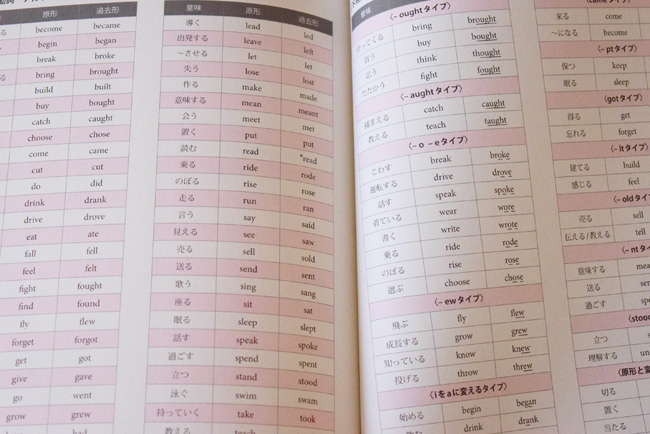 原形 過去形
become became
begin began
break broke
bring brought
build built
buy bought
catch caught
choose chose
come came
cut cut
do did
drink drank
drive drove
eat ate
fall fell
feel felt
fight fought
find found
fly flew
forget forgot
get got
give gave
go went
grow grew
意味 原形 過去形
導く lead led
出発する leave left
〜させる let let
失う lose lost
作る make made
意味する mean meant
会う meet met
置く put put
読む read *read
乗る ride rode
のぼる rise rose
走る run ran
言う say said
見える see saw
売る sell sold
送る send sent
歌う sing sang
座る sit sat
眠る sleep slept
話す speak spoke
過ごす spend spent
立つ stand stood
泳ぐ swim swam
持っていく take took
教える teach
意味
〈－oughtタイプ〉
持ってくる bring brought
買う buy bought
思う think thought
たたかう fight fought
〈－aughtタイプ〉
捕まえる catch caught
教える teach taught
〈－o－eタイプ〉
こわす break broke
運転する drive drove
話す speak spoke
着ている wear wore
書く write wrote
乗る ride rode
のぼる rise rose
選ぶ choose chose
〈－ewタイプ〉
飛ぶ fly flew
成長する grow grew
知っている know knew
投げる throw threw
〈iをaに変えるタイプ〉
始める begin began
drink drank
来る come
〜になる become
〈－ptタイプ〉
保つ keep
眠る sleep
〈gotタイプ〉
得る get
忘れる forget
〈－ltタイプ〉
建てる build
感じる feel
〈－oldタイプ〉
売る sell
伝える/教える tell
〈－ntタイプ〉
意味する
送る
過ごす
立つ
理解する
切る
置く
当たる